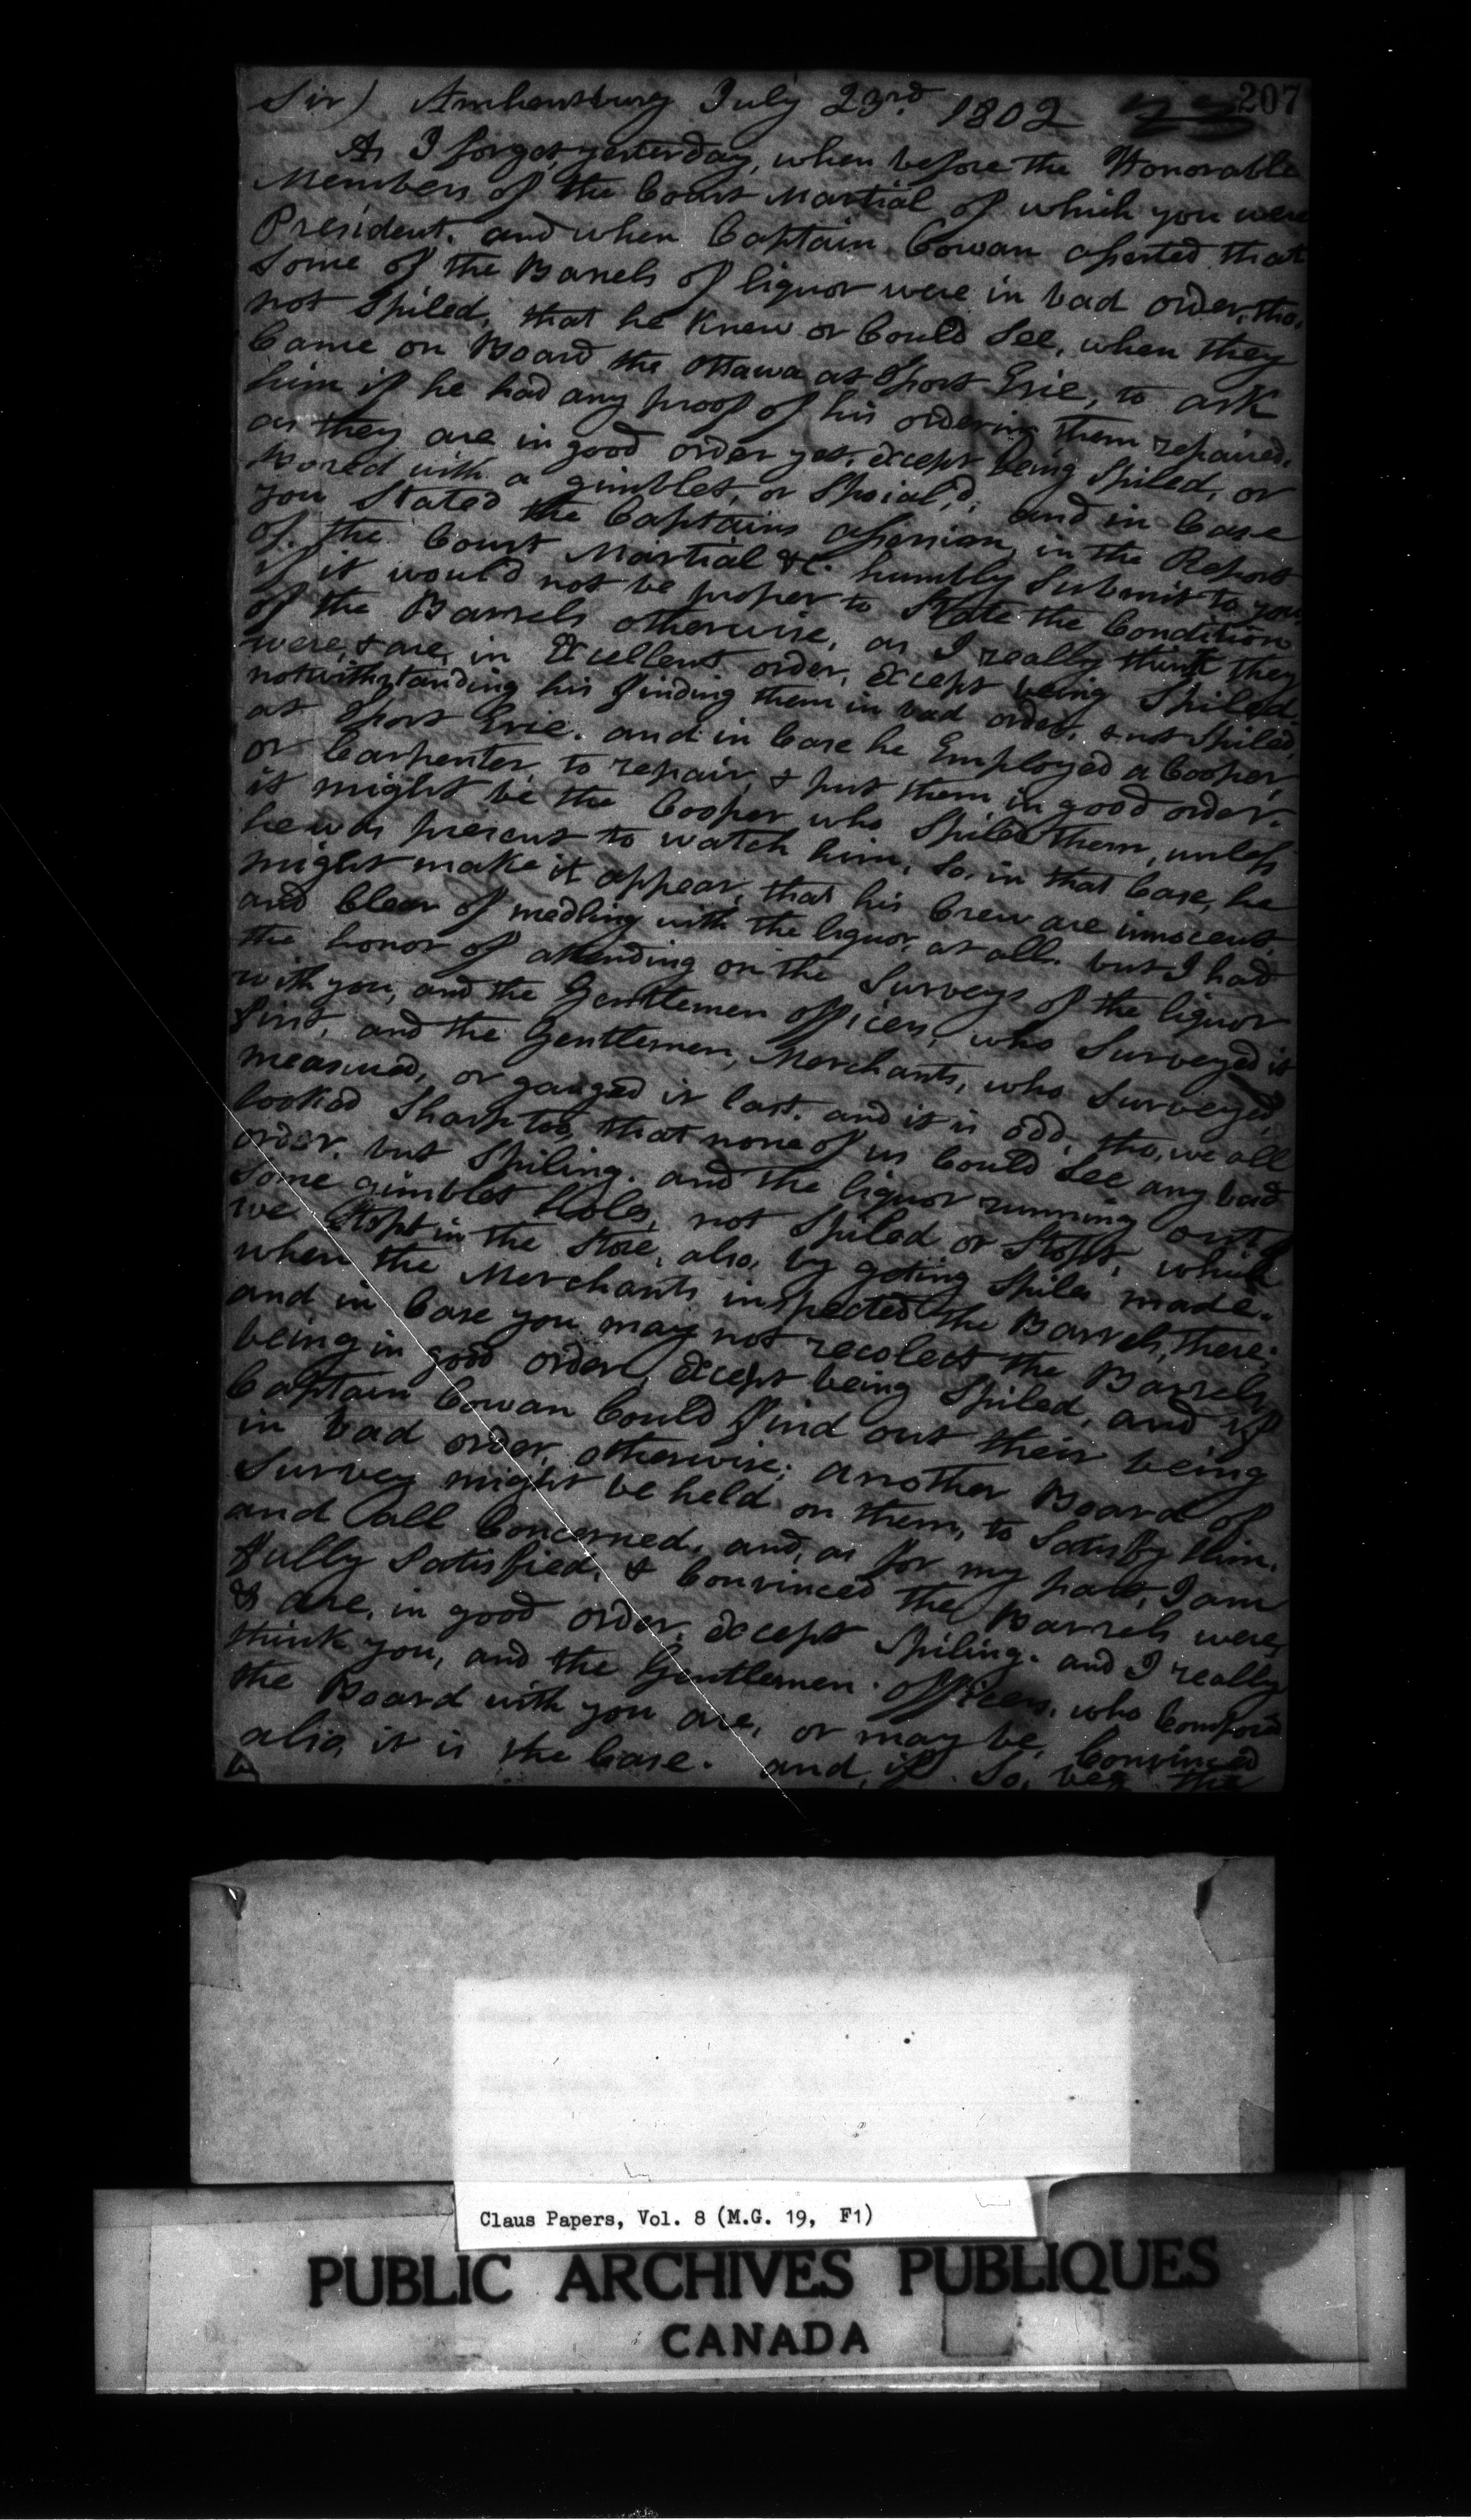 207
Sir) Amhersburg July 23rd 1802
As I forgot yesterday, when before the Honorable
Members of the Court Martial of which you were
President. and when Captain Cowan aserted that
Some of the Barrels of liquor were in bad order, tho,
not Spiled, that he Knew or Could See, when they
Came on Board the Ottawa at Fort Erie, to ask
him if he had any proof of his ordering them repaired.
as they are in good order yet, Except being Spiled, or
bored with a gimblet, or Spoial'd; and in Case
you Stated the Captains asersion, in the Report
of the Court Martial &c. humbly Submit to you
if it would not be proper to State the Condition
of the Barrels otherwise, as I really think they
were, & are, in Excellent order, Except being Spiled.
notwithstanding his finding them in bad order, & not Spiled,
at Fort Erie. and in Case he Employed a Cooper,
or Carpenter, to repair, & put them in good order.
it might be the Cooper who Spiled them, unless
he was present to watch him, So, in that Case, he
might make it appear, that his Crew are innocent
and Clear of medling with the liquor, at all. but I had
the honor of attending on the Surveys of the liquor
with you, and the Gentlemen officers, who Surveyed it
first, and the Gentlemen, Merchants, who Surveyed,
measured, or gauged it last. and it is odd, tho, we all
looked Sharp too, that none of us Could See any bad
order, but Spiling. and the liquor running out of
Some gimblet Holes, not Spiled or Stopt, which
we Stopt in the Store, also, by geting Spiles made.
when the Merchants inspected the Barrels, there;
and in Case you may not recolect the Barrels
being in good order, Except being Spiled, and if
Captain Cowan Could find out their being
in bad order, otherwise; another Board of
Survey might be held on them, to Satisfy him.
and all Concerned, and, as for my part, I am
fully Satisfied, & Convinced the Barrels were,
& are, in good order, Except Spiling. and I really
think you, and the Gentlemen officers, who Composed
the Board with you are, or may be, Convinced
also, it is the Case. and, if So, beg the
Claus Papers, Vol. 8 (M.G. 19, F1)
PUBLIC ARCHIVES PUBLIQUES
CANADA